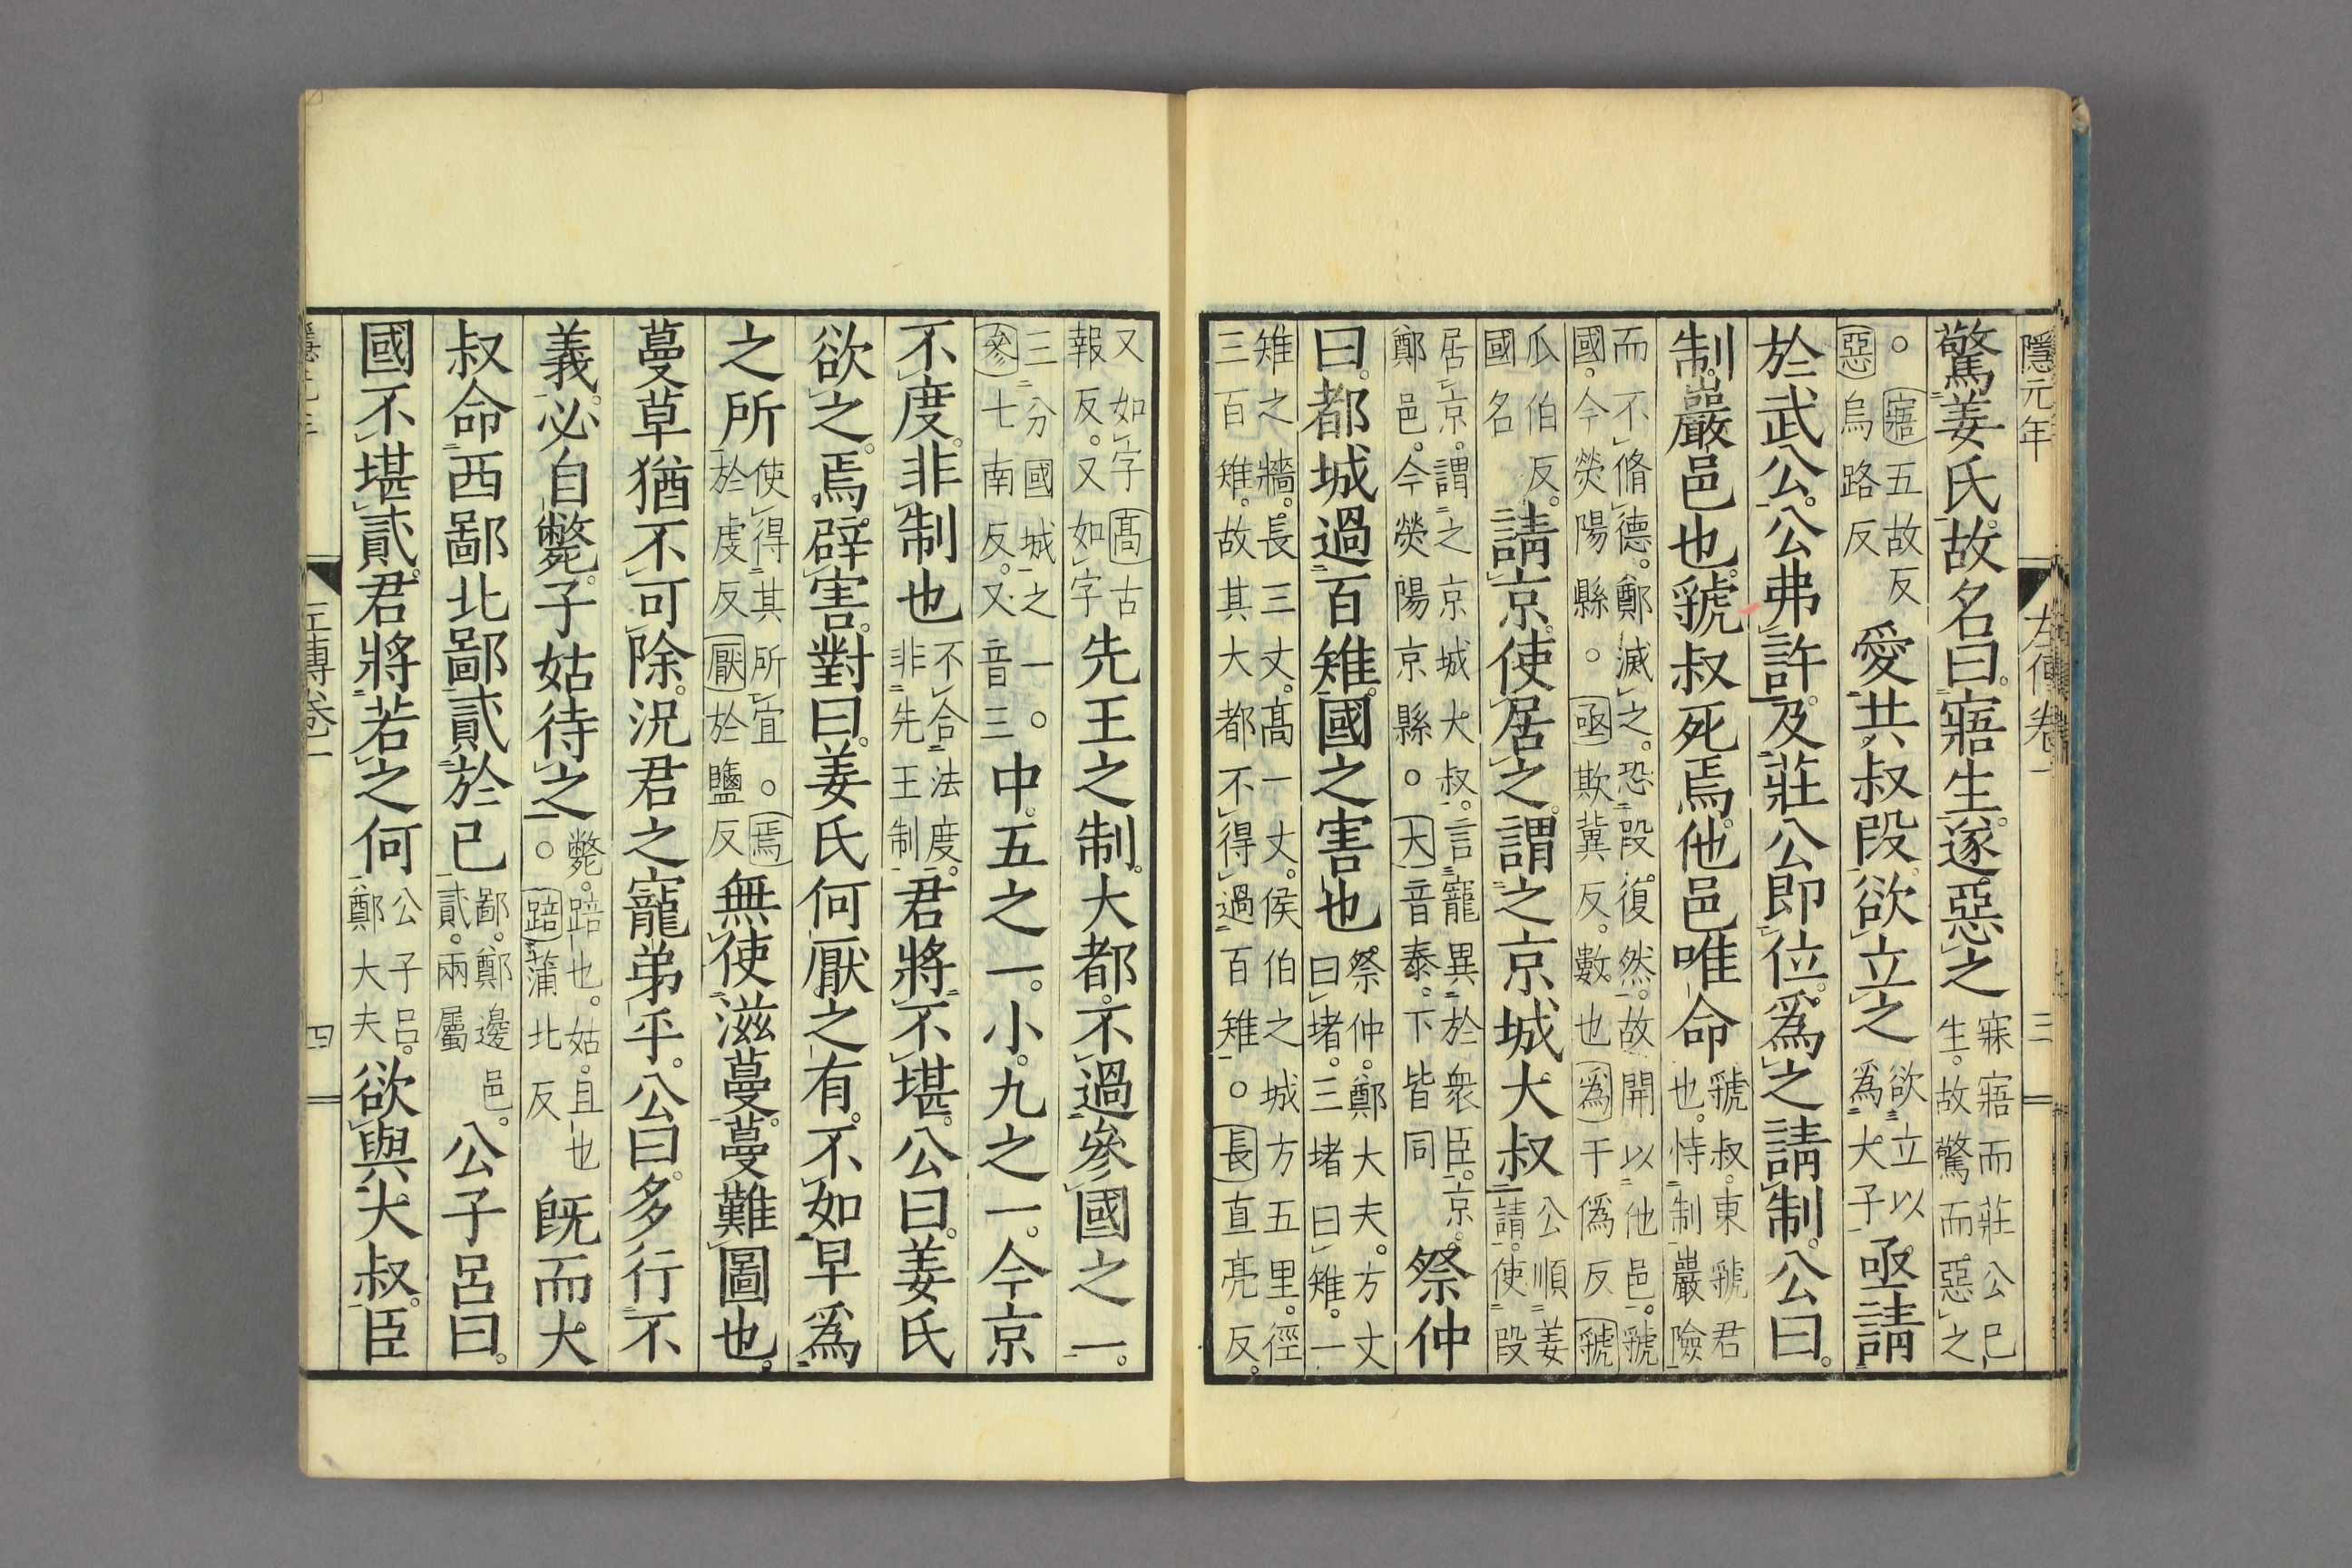 隱元年 左傳卷一 三
驚姜氏。故名曰。寤生。遂惡之寐寤而莊公已生。故驚而惡之
○寤五故反惡烏路反愛共叔段。欲立之欲立以爲大子亟請
於武公。公弗許。及莊公即位。爲之請制。公曰。
制。巖邑也。虢叔死焉。他邑唯命虢叔。東虢君也。恃制巖險
而不脩德。鄭滅之。恐段復然。故開以他邑。虢國。今熒陽縣○亟欺冀反。數也爲于僞反虢
瓜伯反。國名請京。使居之。謂之京城大叔公順姜請。使段
居京。謂之京城大叔。言寵異於衆臣。京。鄭邑。今熒陽京縣○大音泰。下皆同祭仲
曰。都城過百雉。國之害也祭仲。鄭大夫。方丈曰堵。三堵曰雉。一
雉之牆。長三丈。高一丈。侯伯之城方五里。徑三百雉。故其大都不得過百雉○長直亮反。
又如字高古報反。又如字先王之制。大都。不過參國之一。
三分國城之一○參七南反。又音三中。五之一。小。九之一。今京
不度。非制也不合法度。非先王制君將不堪。公曰。姜氏
欲之。焉辟害。對曰。姜氏何厭之有。不如早爲
之所使得其所宜○焉於虔反厭於鹽反無使滋蔓。蔓難圖也。
蔓草猶不可除。況君之寵弟乎。公曰。多行不
義。必自斃。子姑待之斃。踣也。姑。且也○踣蒲北反旣而大
叔命西鄙北鄙貳於己鄙。鄭邊邑。貳。兩屬公子呂曰。
國不堪貳。君將若之何公子呂。鄭大夫欲與大叔。臣
隱元年 左傳卷一 四